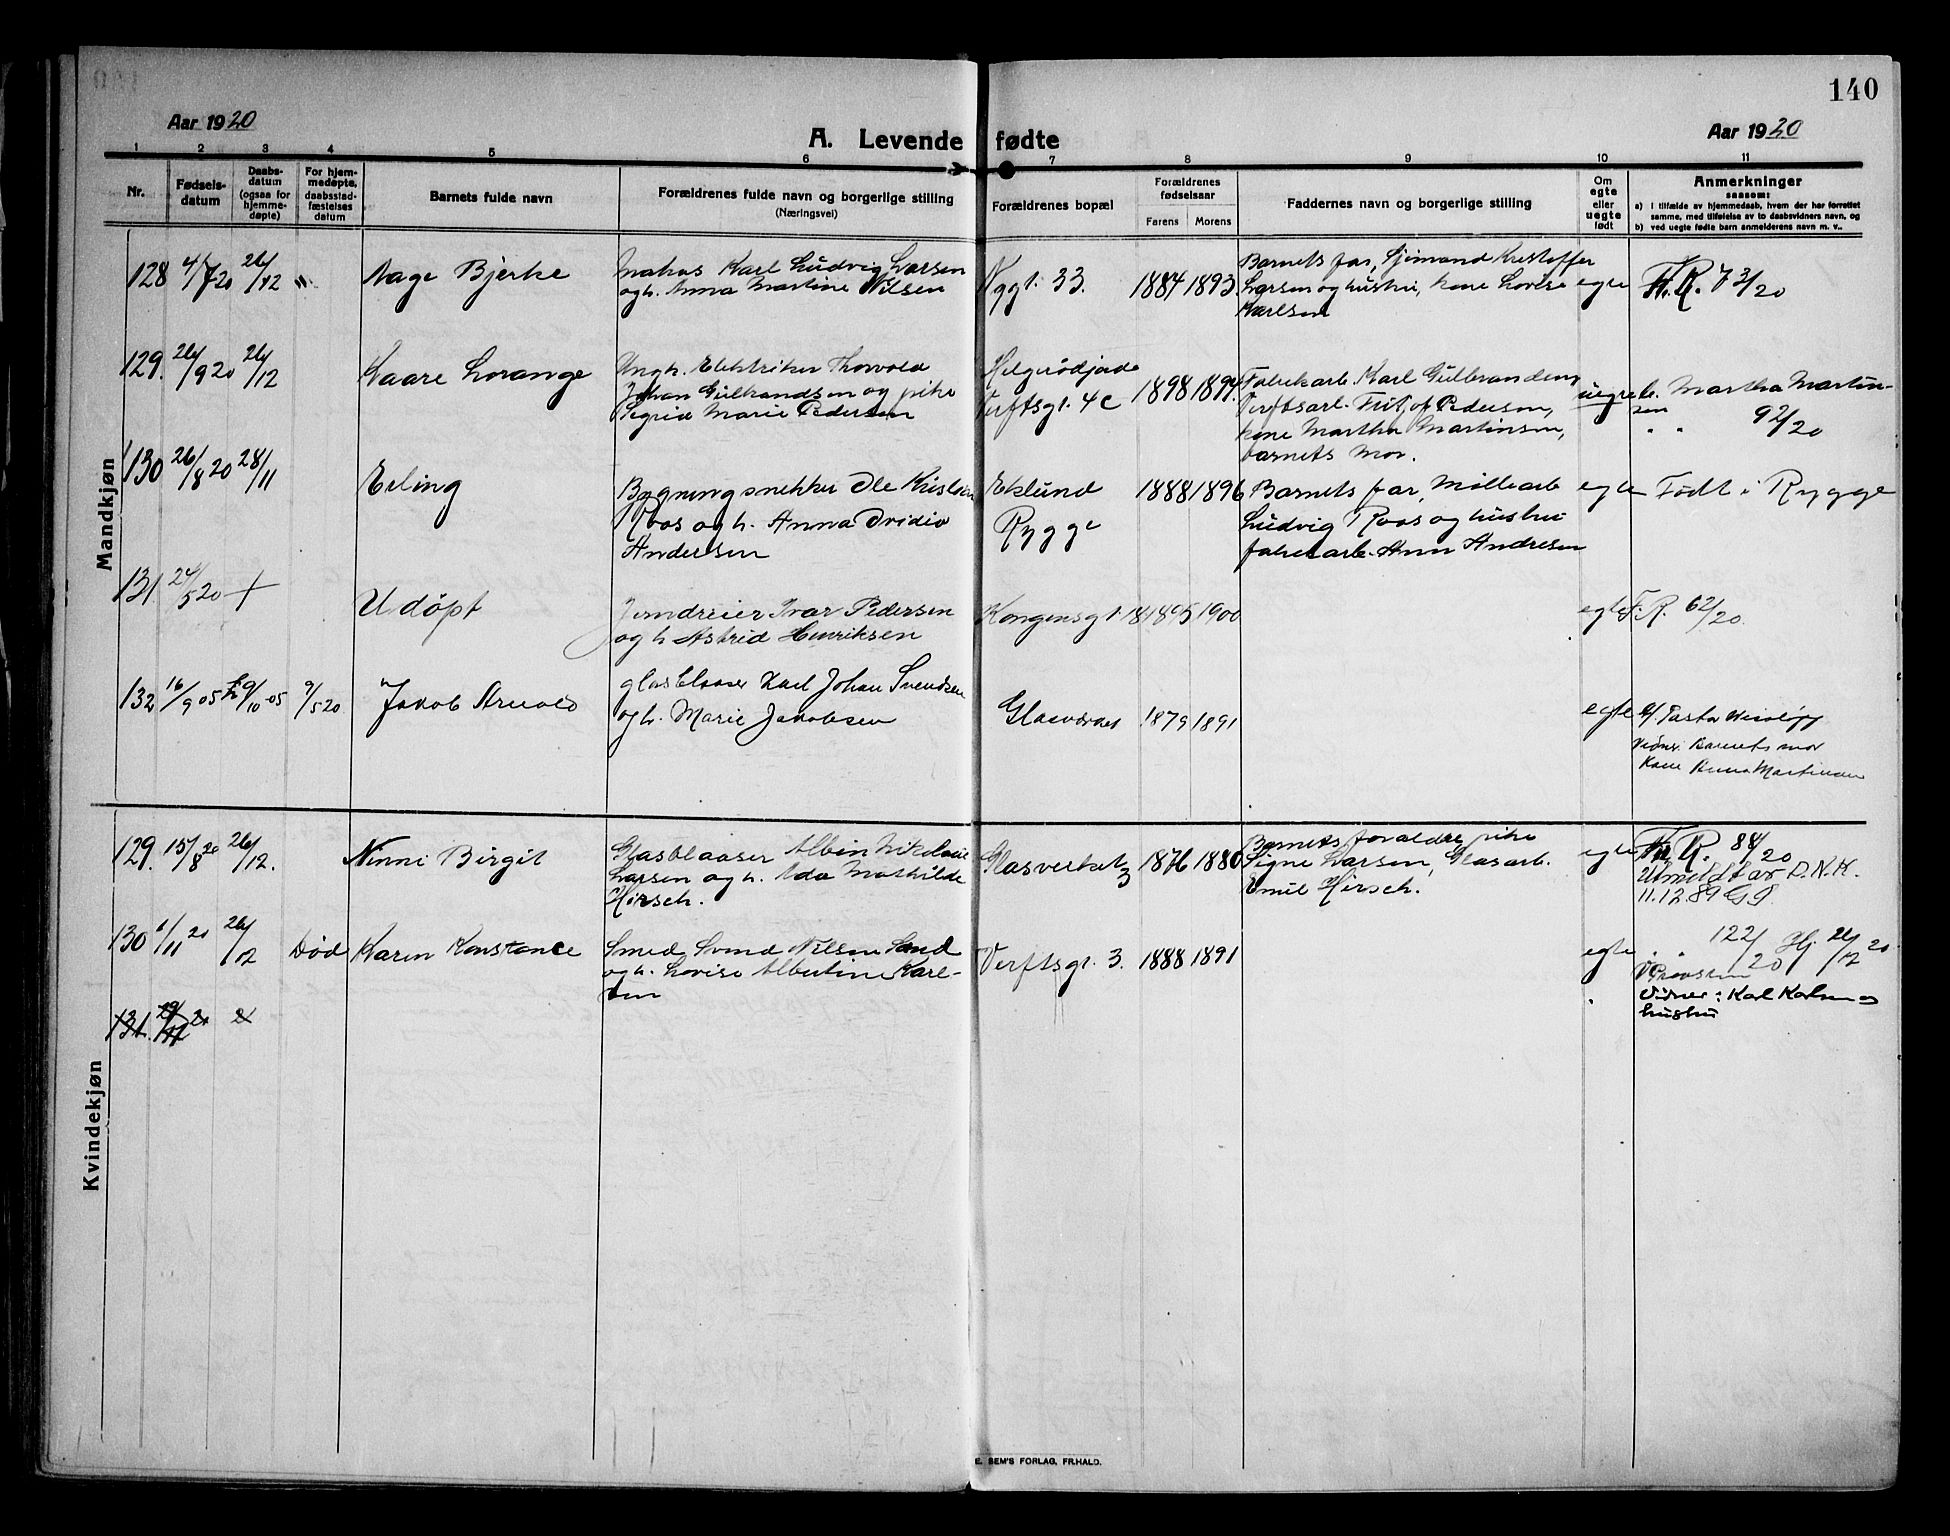 140
Aar 1920
A. Levende fødte
Aar 1920
1 2 3 4 5 6 7 8 9 10 11
Nr.
Fødsels-
datum
Daabs-
datum
(ogsaa for
hjemme-
døpte)
For hjem-
medøpte,
daabsstad-
fæstelses
datum
Barnets fulde navn
Forældrenes fulde navn og borgerlige stilling
(Næringsvei)
Forældrenes bopæl
Forældrenes
fødselsaar
Farens Morens
Faddernes navn og borgerlige stilling
Om
egte
eller
uegte
født
Anmerkninger
saasom:
a) i tilfælde av hjemmedaab, hvem der har forrettet
samme, med tilføielse av to daabsvidners navn, og
b) ved uegte fødte barn anmelderens navn m. v..
Mandkjøn
128 4/7 20 26/12 Aage Bjerke
Karl Ludvig Larsen
og h. Anna Martine Nilsen
Nygt. 33. 1884 1893
Barnets far, Sjømand Kristoffer
Larsen og hustru, kone Lovise
Karlsen
egte F.R. 73/20
129. 26/9 20 26/12 Kaare Lorange
Ungk. Elektriker Thorvald
Johan Gulbrandsen og pike
Sigrid Marie Pedersen
Verftsgt. 4c 1898 1897.
Fabrikarb. Karl Gulbrandsen,
Verftsarb. Fritjof Pedersen,
kone Martha Martinsen,
barnets mor.
uegte Martha Martin-
sen
" " 92/20
130 26/8 20 28/11 Erling
Bygningsnekker Ole Kristian
Roos og h. Anna Ovidia
Andersen
Eklund
Rygge
1888 1896
Barnets far, Møllearb
Ludvig Roos og hustru
fabrikarb. Ann Andresen
egte Født i Rygge
131. 24/5 20 + Udøpt
Jerndreier Ivar Pedersen
og h Astrid Henriksen
Kongensgt. 1895 1900
egte F.R. 62/20
132 16/9 05 9/10 05 9/5 20 Jakob Arnold
Glasblaaser Karl Johan Svendsen
og h. Marie Jakobsen
Glasverket 1879 1891
egte
Vidner Barnets mor
Kone Martinsen
Kvindekjøn
129. 15/8 20 26/12. Ninni Birgit
Glasblaaser Albin Nikolaie
Larsen og h. Ada Mathilde
Hirsch.
Glasverket 3 1876 1880
Barnets forældre, pike
Signe Larsen, Glasarb.
Emil Hirsch.
egte F.R. 84/20
Utmeldt av D.N.K.
11.12.89 G.P.
130 1/11 20 26/12 Død Karen Konstance
Smed Svend Nilsen Sand
og h. Lovise Albertine Karl-
sen
Verftsgt. 3. 1888 1891
egte " " 122/20 Hj. 26/12 20
V/ Provsten
Vidner: Karl Karlsen og
hustru
131. 29/11 20
E. SEM'S FORLAG, FR.HALD.